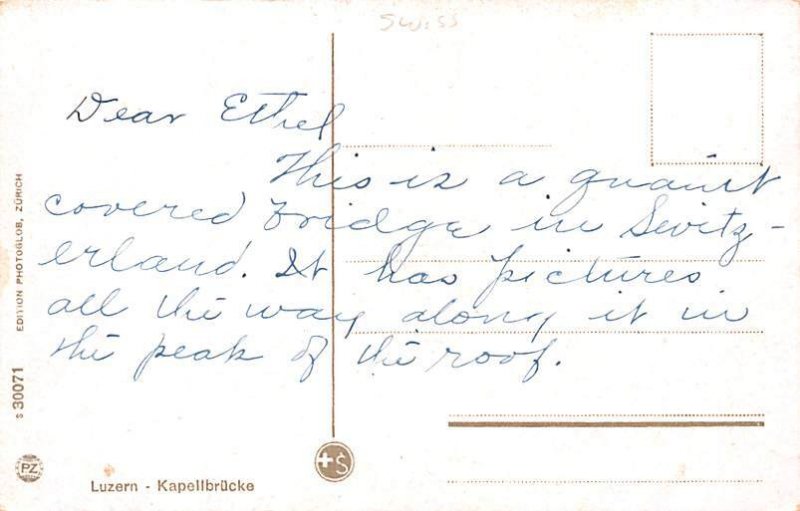 SWISS
Dear Ethel
This is a quaint
covered bridge in Switz-
erland. It has pictures
all the way along it in
the peak of the roof.
EDITION PHOTOGLOB, ZÜRICH
S 30071
PZ
+S
Luzern - Kapellbrücke